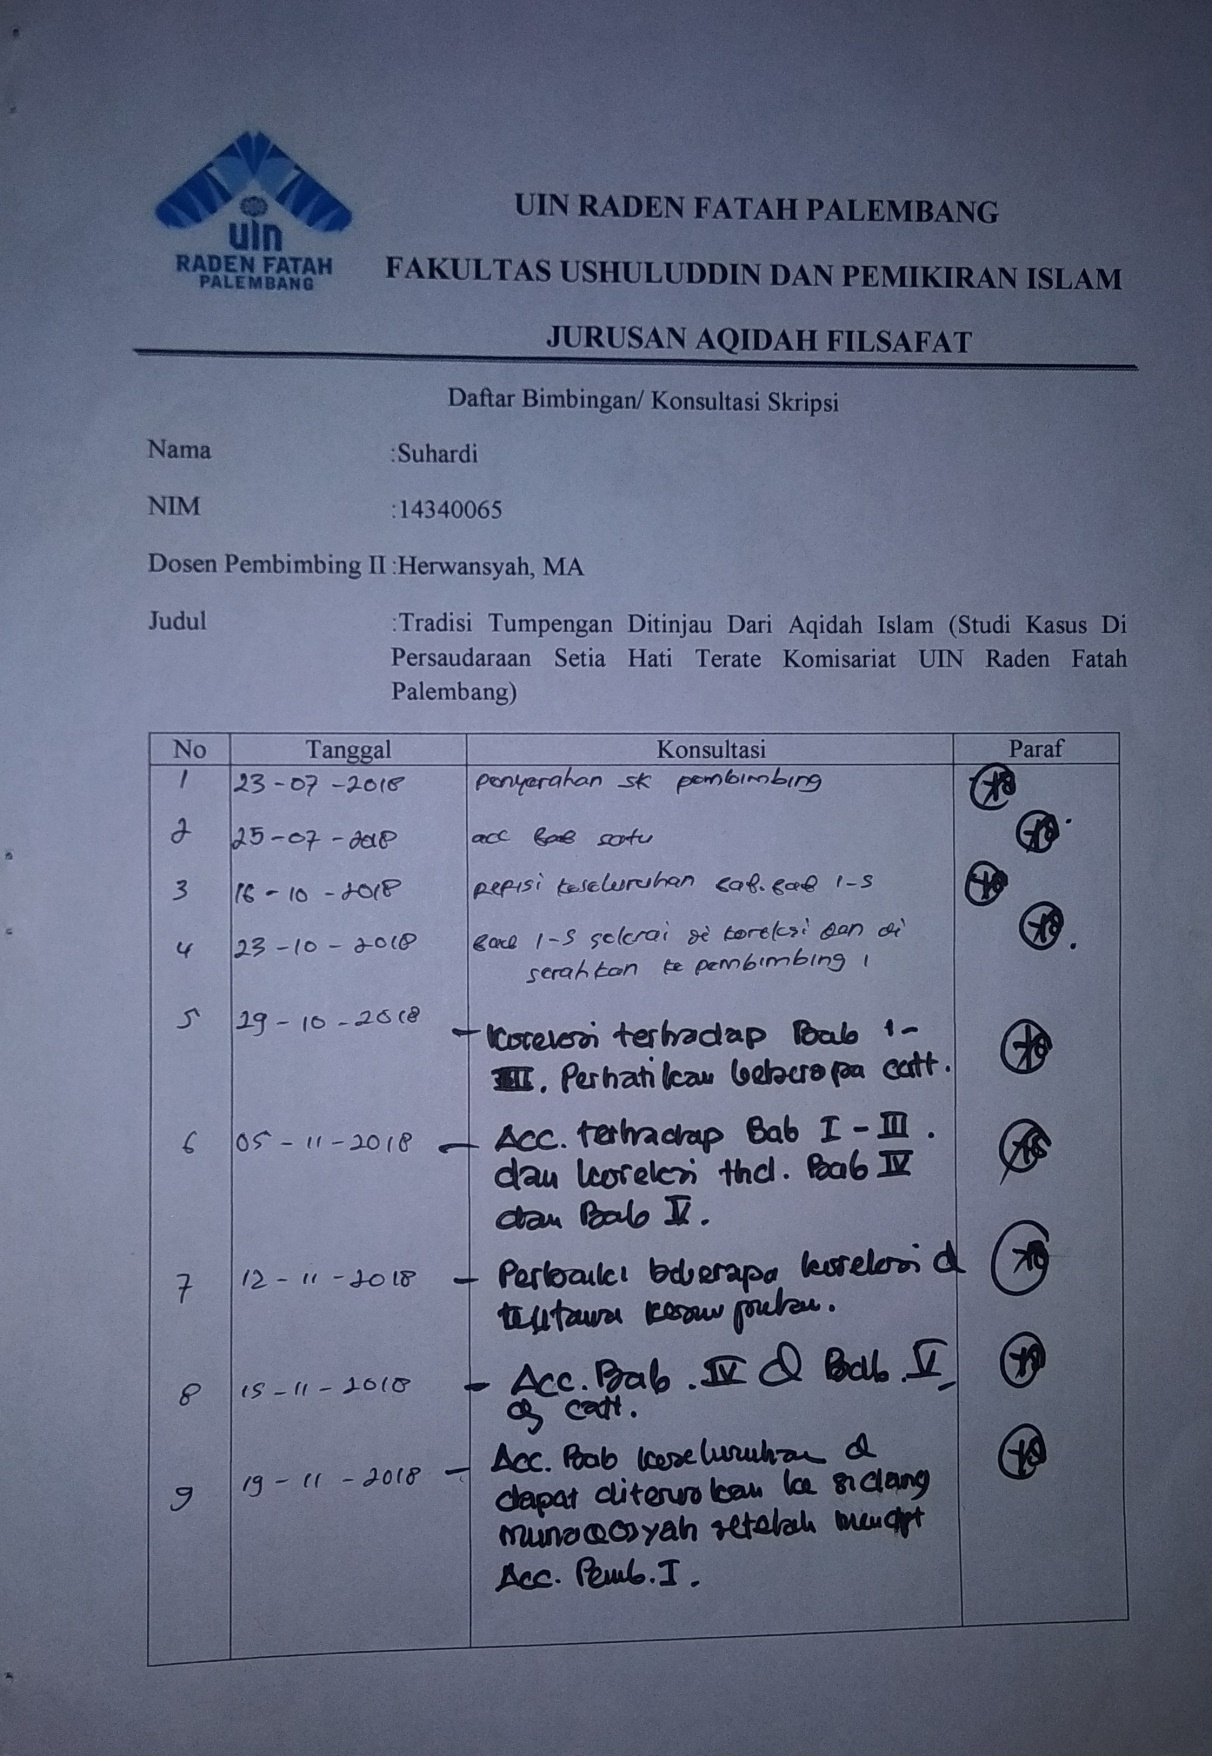 uin
RADEN FATAH
PALEMBANG
UIN RADEN FATAH PALEMBANG
FAKULTAS USHULUDDIN DAN PEMIKIRAN ISLAM
JURUSAN AQIDAH FILSAFAT
Daftar Bimbingan/ Konsultasi Skripsi
Nama :Suhardi
NIM :14340065
Dosen Pembimbing II :Herwansyah, MA
Judul :Tradisi Tumpengan Ditinjau Dari Aqidah Islam (Studi Kasus Di
Persaudaraan Setia Hati Terate Komisariat UIN Raden Fatah
Palembang)
No Tanggal Konsultasi Paraf
1 23-07-2018 penyerahan sk pembimbing
2 25-07-2018 acc Bab satu
3 16-10-2018 refisi keseluruhan bab. bab 1-5
4 23-10-2018 Bab 1-5 selesai di koreksi dan di
serahkan ke pembimbing 1
5 29-10-2018 - Koreksi terhadap Bab 1-
III. Perhatikan beberapa catt.
6 05-11-2018 - Acc. terhadap Bab I - III.
dan koreksi thd. Bab IV
dan Bab V.
7 12-11-2018 - Perbaiki beberapa koreksi &
kesimpulan.
8 15-11-2018 - Acc. Bab. IV & Bab. V,
dg catt.
9 19-11-2018 - Acc. Bab keseluruhan &
dapat diteruskan ke sidang
munaqosyah setelah mendpt
Acc. Pemb. I.